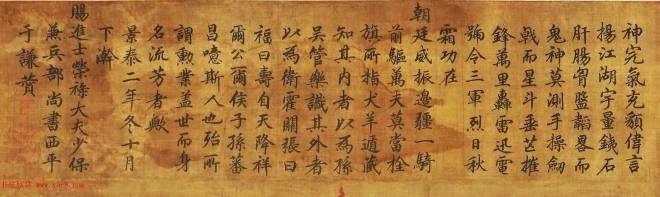 神完氣充貌偉言
揚江湖宇量鐵石
肝腸胷蟠韜畧而
鬼神莫測手操劒
戟而星斗垂芒摧
鋒萬里轟雷迅電
號令三軍烈日秋
霜功在
朝廷威振邊疆一騎
前驅萬夫莫當拴
旗所指犬羊遁藏
知其内者以為孫
吳管樂識其外者
以為衛霍關張曰
福曰壽自天降祥
爾公爾侯子孫蕃
昌噫斯人也殆所
謂勳業蓋世而身
名流芳者歟
景泰二年冬十月
下澣
賜進士榮祿大夫少保
兼兵部尚書西平
于謙贊